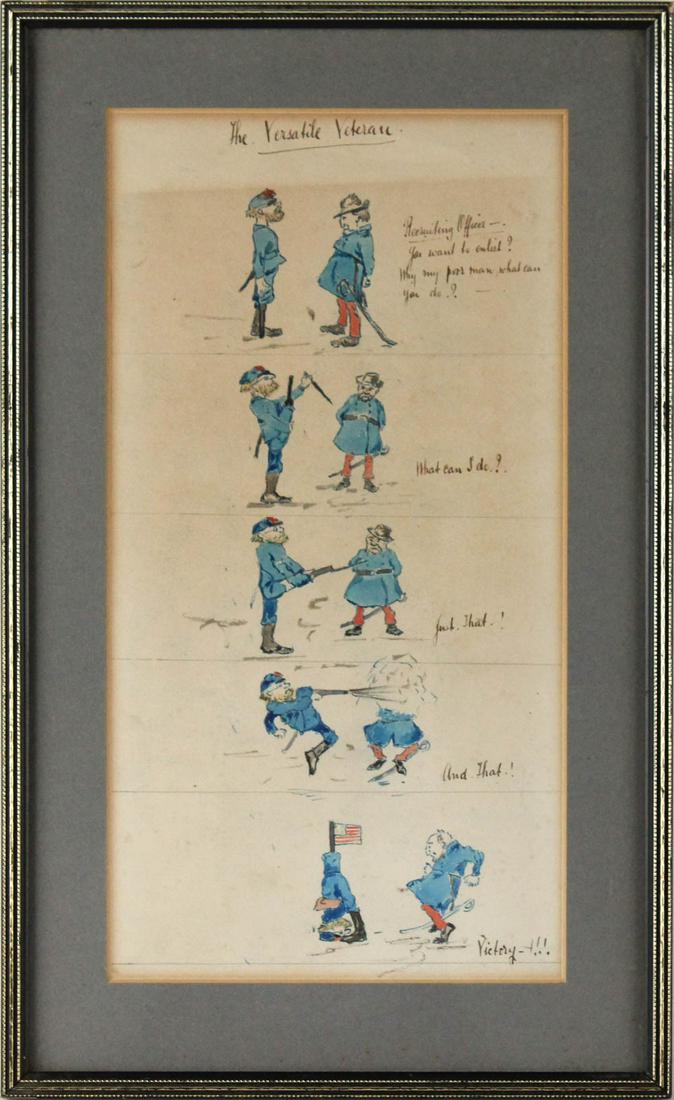 The Versatile Veteran.
Recruiting Officer —.
You want to enlist?
Why my poor man, what can
you do.? —
What can I do.?.
Just. That.-!
And. That.!
Victory-!!!.